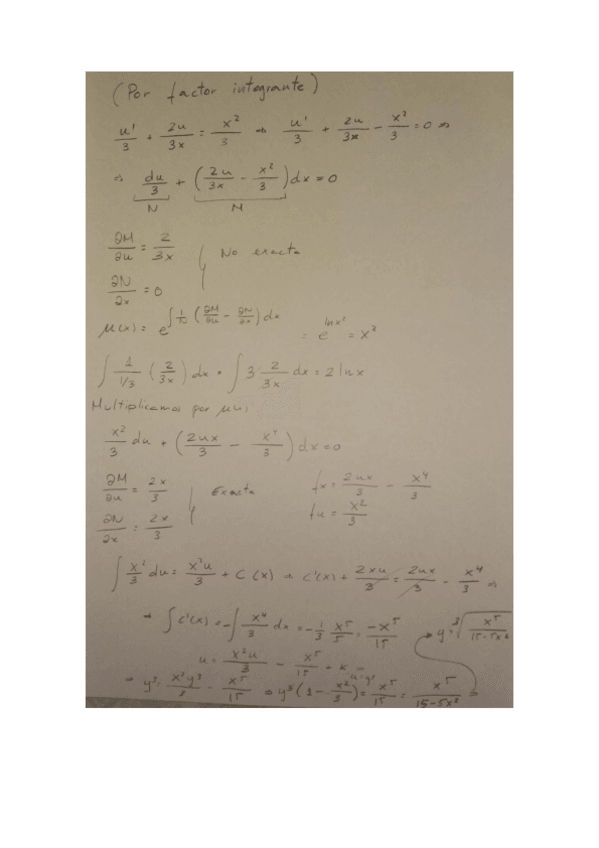 (Por factor integrante)
u'/3 + 2u/3x = x²/3 ⇒ u'/3 + 2u/3x - x²/3 = 0 ⇒
⇒ du/3 + (2u/3x - x²/3)dx = 0
N M
∂M/∂u = 2/3x No exacta
∂N/∂x = 0
μ(x) = e^∫ 1/N (∂M/∂u - ∂N/∂x) dx = e^lnx² = x²
∫ 1/1/3 (2/3x) dx = ∫ 3·2/3x dx = 2 lnx
Multiplicamos por μ(x)
x²/3 du + (2ux/3 - x⁴/3) dx = 0
∂M/∂u = 2x/3 Exacta fx = 2ux/3 - x⁴/3
∂N/∂x = 2x/3 fu = x²/3
∫ x²/3 du = x²u/3 + C(x) ⇒ C'(x) + 2xu/3 = 2ux/3 - x⁴/3 ⇒
⇒ ∫C'(x) = -∫ x⁴/3 dx = -1/3 x⁵/5 = -x⁵/15
y = ³√ x⁵/15-5x²
u = x²u/3 - x⁵/15 + K
u=y³
⇒ y³ = x²y³/3 - x⁵/15 ⇒ y³(1 - x²/3) = x⁵/15 = x⁵/15-5x² ⇒